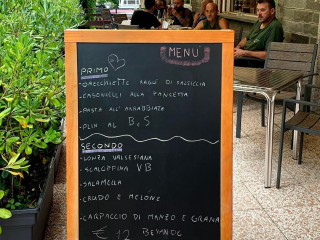 MENÙ
PRIMO
-ORECCHIETTE RAGÙ DI SALSICCIA
-CASONCELLI ALLA PANCETTA
-PASTA ALL'ARRABBIATA
-PLIN AL B.S
SECONDO
-LONZA VALSESIANA
-SCALOPPINA VB
-SALAMELLA
-CRUDO E MELONE
-CARPACCIO DI MANZO E GRANA
€ 12